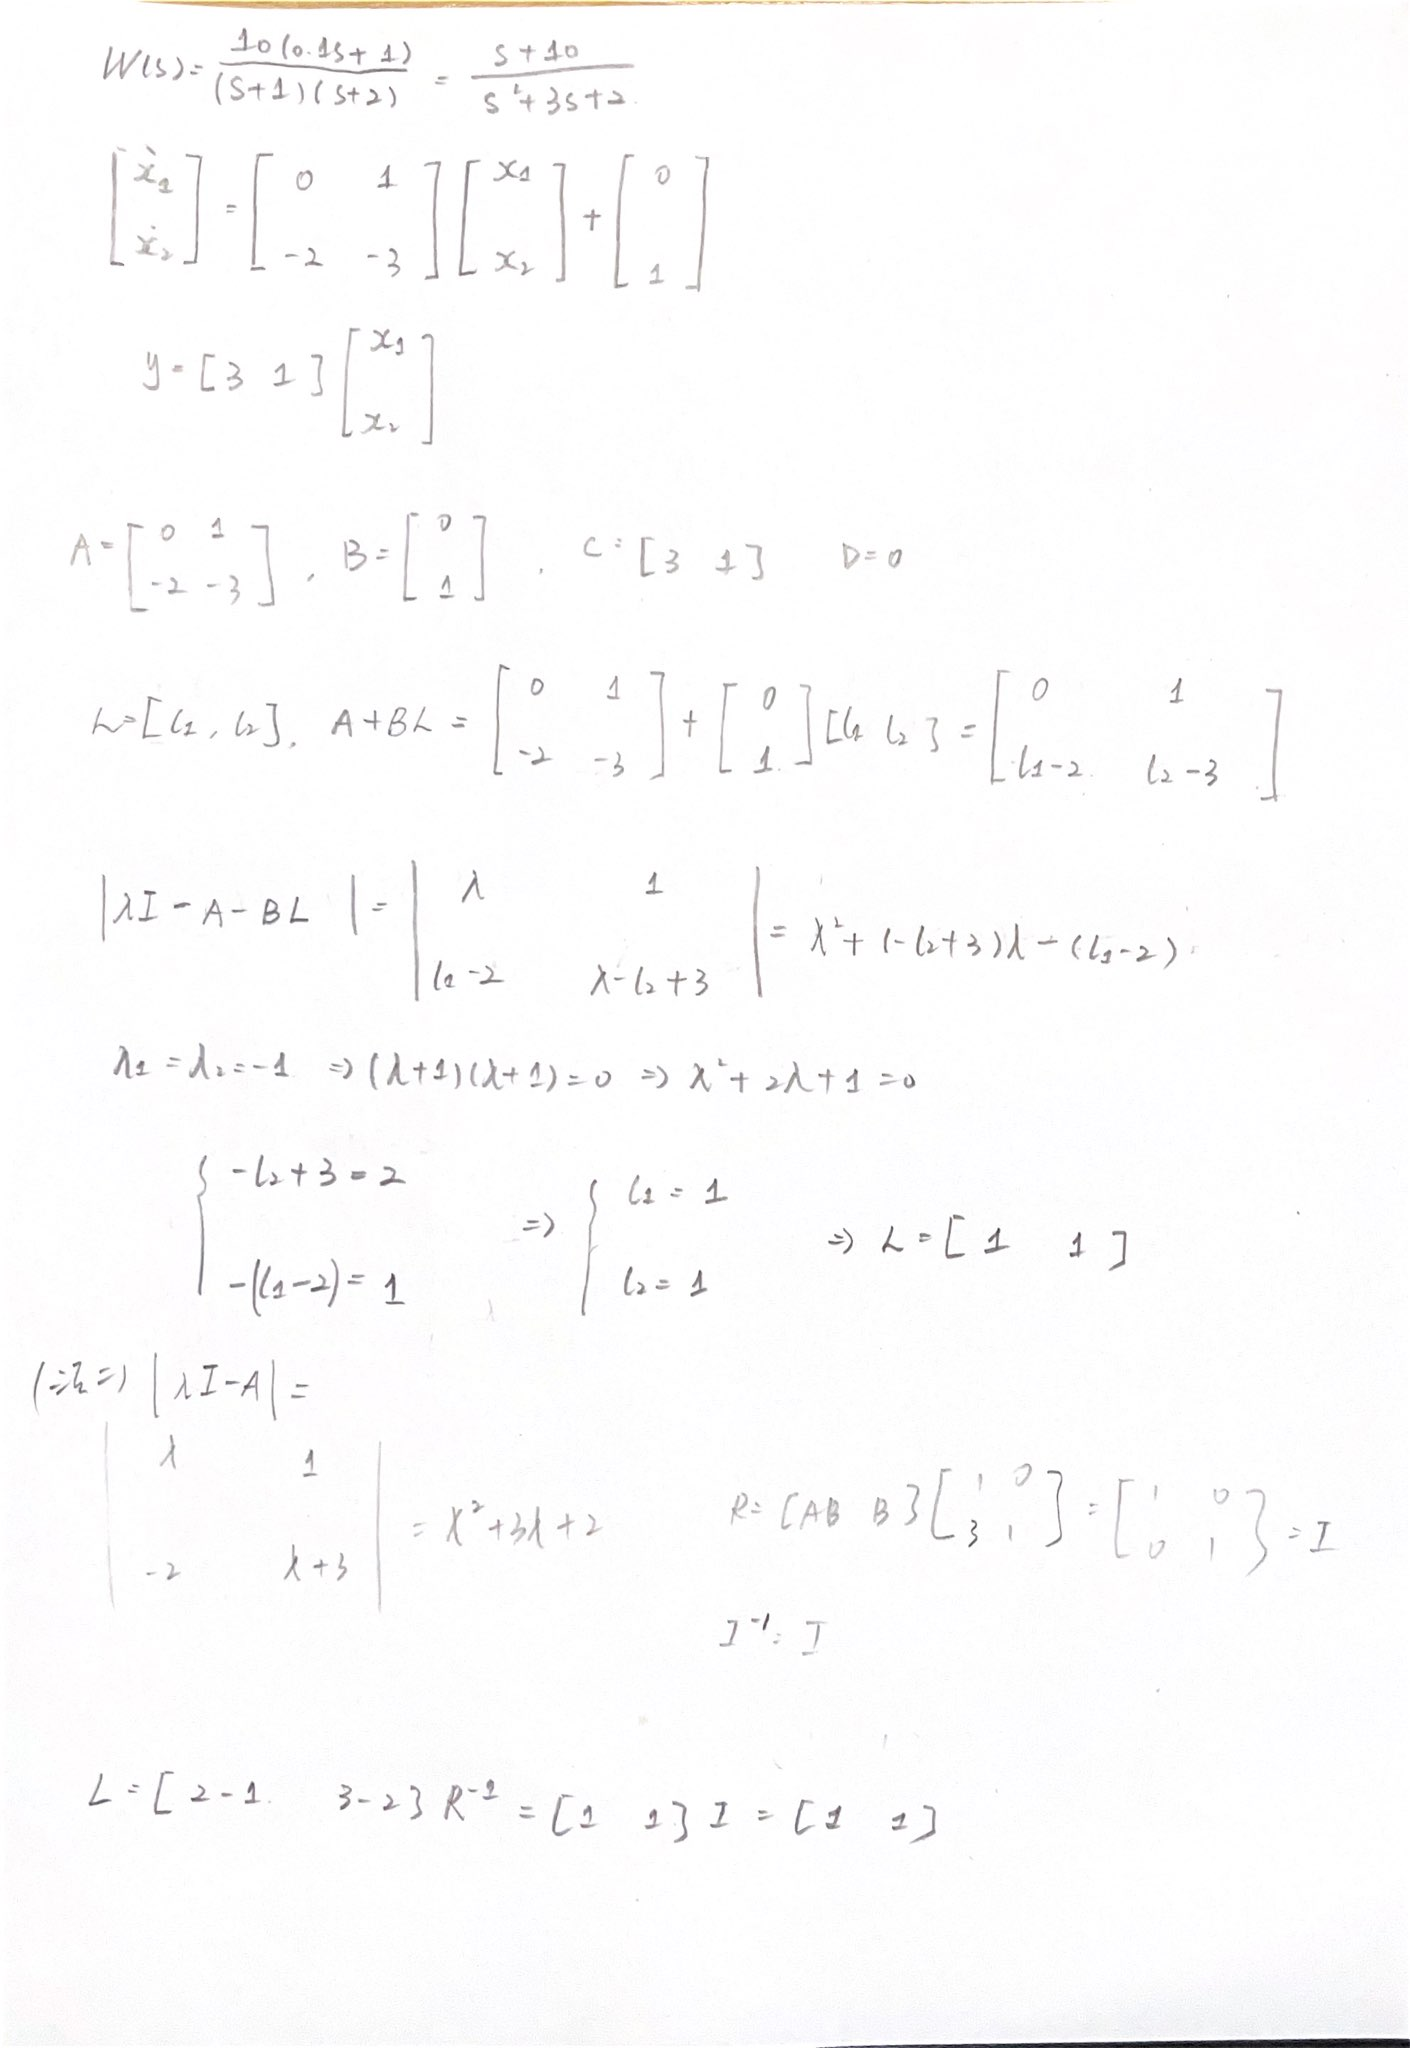 W(s) = 10(0.1s+1) / (s+1)(s+2) = s+10 / s²+3s+2
[ẋ₁ ẋ₂] = [0 1; -2 -3] [x₁ x₂] + [0 1]
y = [3 1] [x₁ x₂]
A = [0 1; -2 -3], B = [0 1], C = [3 1] D=0
L=[l₁, l₂], A+BL = [0 1; -2 -3] + [0 1] [l₁ l₂] = [0 1; l₁-2 l₂-3]
|λI-A-BL| = |λ 1; l₂-2 λ-l₂+3| = λ²+(-l₂+3)λ-(l₁-2)
λ₁=λ₂=-1 ⇒ (λ+1)(λ+1)=0 ⇒ λ²+2λ+1=0
{-l₂+3=2; -(l₁-2)=1 ⇒ {l₁=1; l₂=1 ⇒ L=[1 1]
(法二) |λI-A| =
|λ 1; -2 λ+3| = λ²+3λ+2
R=[AB B][1 0; 3 1] = [1 0; 0 1] = I
I⁻¹ = I
L=[2-1 3-2]R⁻¹ = [1 1]I = [1 1]